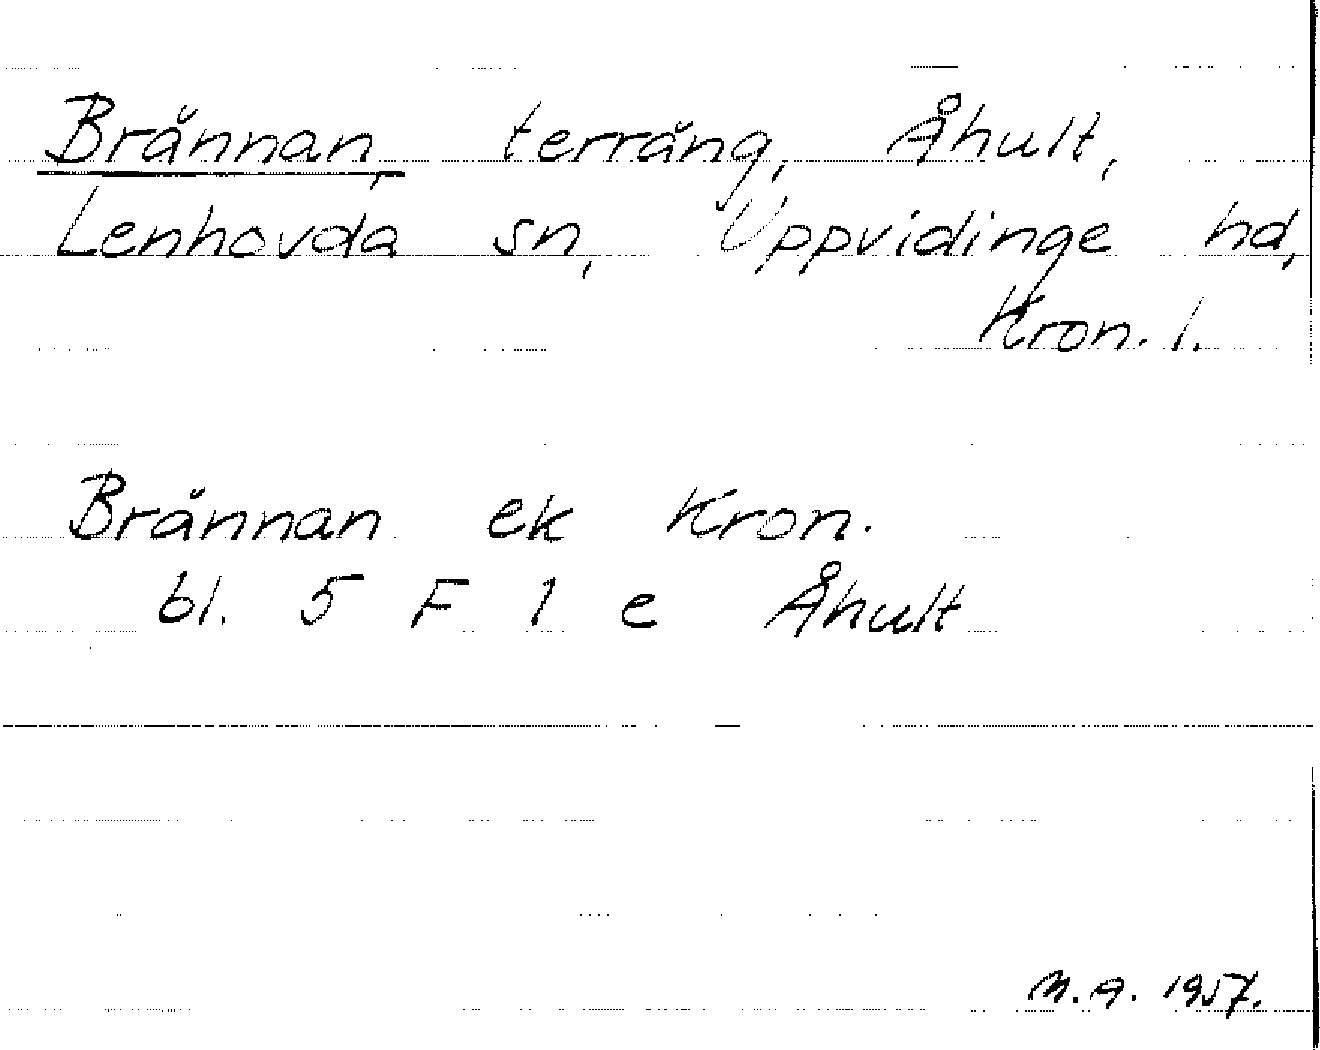 Brännan, terräng, Åhult,
Lenhovda sn, Uppvidinge hd,
Kron. l.
Brännan ek Kron.
bl. 5 F 1 e Åhult
M.A. 1957.